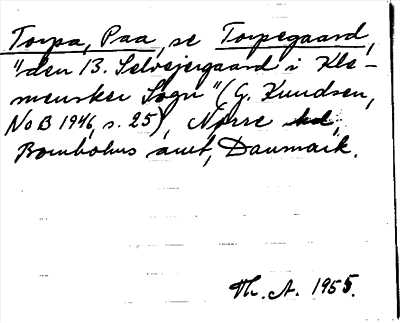 Torpa, Paa, se Torpegaard,
"den 13. Selvejergaard i Kle-
mensker Sogn" (G. Knudsen,
NoB 1946, s. 25), Nørre hd,
Bornholms amt, Danmark.
Th. A. 1955.